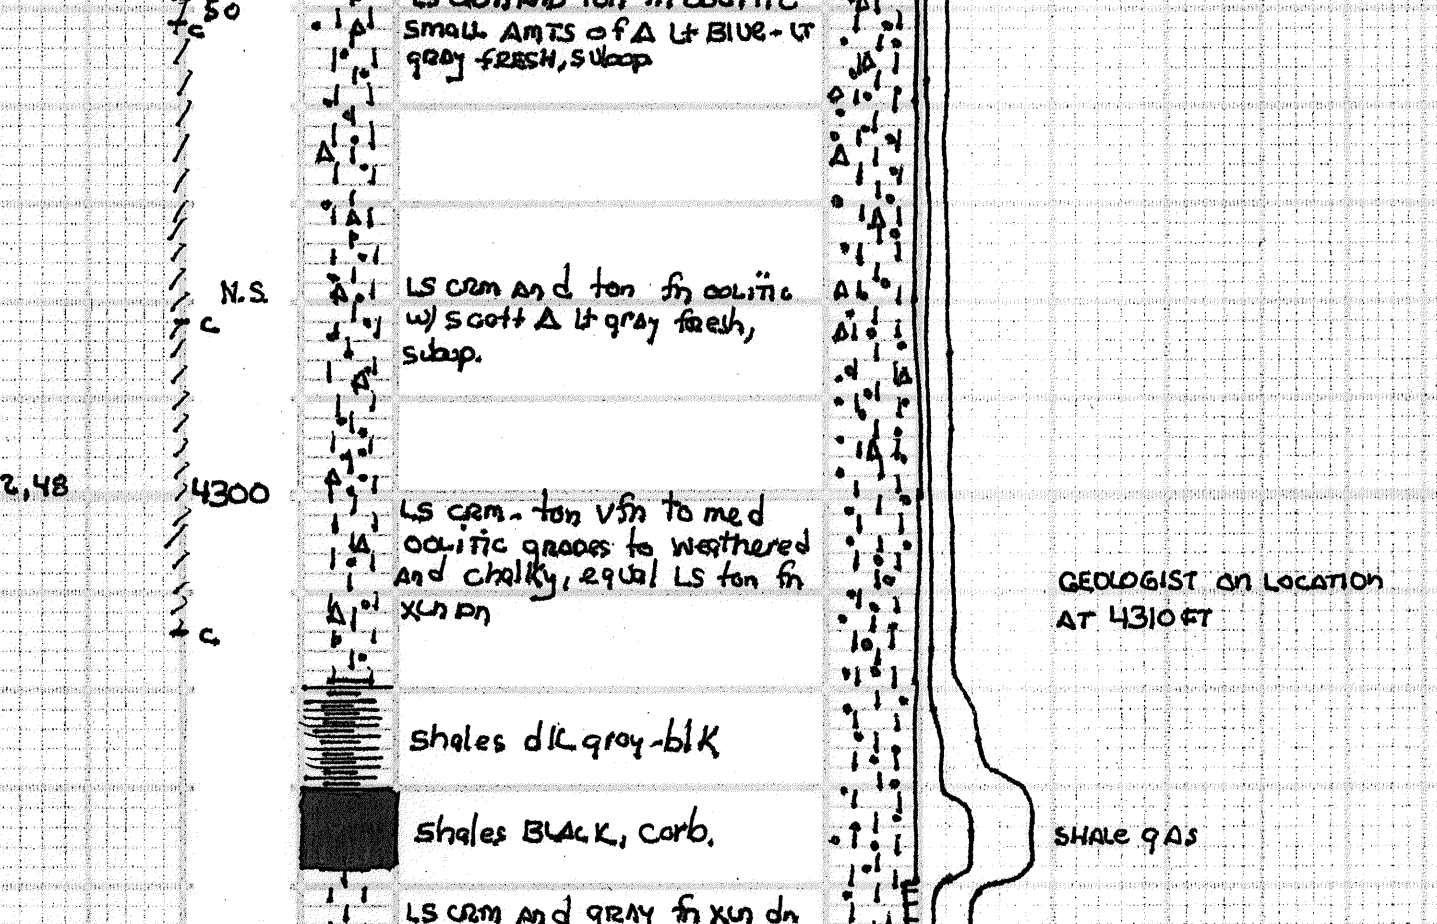 50
c
small AMTS of Δ Lt BLUE - LT
gray fRESH, subop
N.S.
LS CRM and tan fn oolitic
c
w/ scatt Δ lt gray fresh,
subop.
2,48
4300
LS CRM - tan Vfn to med
oolitic grades to weathered
and chalky, equal LS tan fn
xln dn
c
GEOLOGIST on LOCATION
AT 4310 FT
shales dk gray - blk
shales BLACK, carb.
SHALE gAs
LS CRM and GRAY fn xln dn